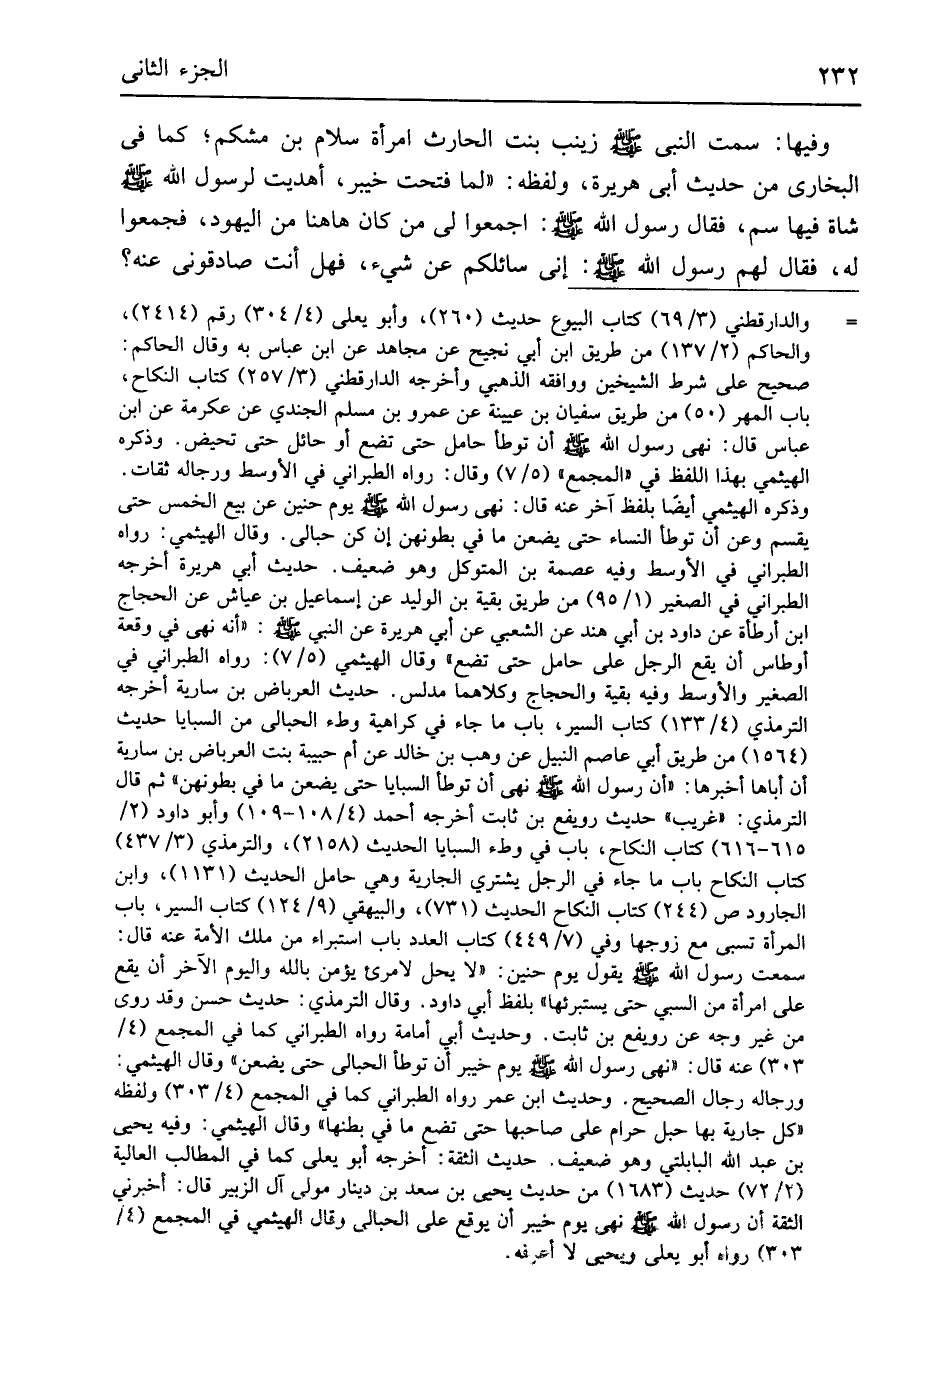 ٢٣٢ الجزء الثانى
وفيها: سمت النبى ﷺ زينب بنت الحارث امرأة سلام بن مشكم؛ كما فى
البخارى من حديث أبى هريرة، ولفظه: «لما فتحت خيبر، أهديت لرسول الله ﷺ
شاة فيها سم، فقال رسول الله ﷺ: اجمعوا لى من كان هاهنا من اليهود، فجمعوا
له، فقال لهم رسول الله ﷺ: إنى سائلكم عن شيء، فهل أنت صادقونى عنه؟
= والدارقطني (٦٩/٣) كتاب البيوع حديث (٢٦٠)، وأبو يعلى (٣٠٤/٤) رقم (٢٤١٤)،
والحاكم (١٣٧/٢) من طريق ابن أبي نجيح عن مجاهد عن ابن عباس به وقال الحاكم:
صحيح على شرط الشيخين ووافقه الذهبي وأخرجه الدارقطني (٢٥٧/٣) كتاب النكاح،
باب المهر (٥٠) من طريق سفيان بن عيينة عن عمرو بن مسلم الجندي عن عكرمة عن ابن
عباس قال: نهى رسول الله ﷺ أن توطأ حامل حتى تضع أو حائل حتى تحيض. وذكره
الهيثمي بهذا اللفظ في «المجمع» (٧/٥) وقال: رواه الطبراني في الأوسط ورجاله ثقات.
وذكره الهيثمي أيضًا بلفظ آخر عنه قال: نهى رسول الله ﷺ يوم حنين عن بيع الخمس حتى
يقسم وعن أن توطأ النساء حتى يضعن ما في بطونهن إن كن حبالى. وقال الهيثمي: رواه
الطبراني في الأوسط وفيه عصمة بن المتوكل وهو ضعيف. حديث أبي هريرة أخرجه
الطبراني في الصغير (٩٥/١) من طريق بقية بن الوليد عن إسماعيل بن عياش عن الحجاج
ابن أرطأة عن داود بن أبي هند عن الشعبي عن أبي هريرة عن النبي ﷺ : «أنه نهى في وقعة
أوطاس أن يقع الرجل على حامل حتى تضع» وقال الهيثمي (٧/٥): رواه الطبراني في
الصغير والأوسط وفيه بقية والحجاج وكلاهما مدلس. حديث العرباض بن سارية أخرجه
الترمذي (١٣٣/٤) كتاب السير، باب ما جاء في كراهية وطء الحبالى من السبايا حديث
(١٥٦٤) من طريق أبي عاصم النبيل عن وهب بن خالد عن أم حبيبة بنت العرباض بن سارية
أن أباها أخبرها: «أن رسول الله ﷺ نهى أن توطأ السبايا حتى يضعن ما في بطونهن» ثم قال
الترمذي: «غريب» حديث رويفع بن ثابت أخرجه أحمد (١٠٨/٤-١٠٩) وأبو داود (٢/
٦١٥-٦١٦) كتاب النكاح، باب في وطء السبايا الحديث (٢١٥٨)، والترمذي (٤٣٧/٣)
كتاب النكاح باب ما جاء في الرجل يشتري الجارية وهي حامل الحديث (١١٣١)، وابن
الجارود ص (٢٤٤) كتاب النكاح الحديث (٧٣١)، والبيهقي (١٢٤/٩) كتاب السير، باب
المرأة تسبى مع زوجها وفي (٤٤٩/٧) كتاب العدد باب استبراء من ملك الأمة عنه قال:
سمعت رسول الله ﷺ يقول يوم حنين: «لا يحل لامرئ يؤمن بالله واليوم الآخر أن يقع
على امرأة من السبي حتى يستبرئها» بلفظ أبي داود. وقال الترمذي: حديث حسن وقد روى
من غير وجه عن رويفع بن ثابت. وحديث أبي أمامة رواه الطبراني كما في المجمع (٤/
٣٠٣) عنه قال: «نهى رسول الله ﷺ يوم خيبر أن توطأ الحبالى حتى يضعن» وقال الهيثمي:
ورجاله رجال الصحيح. وحديث ابن عمر رواه الطبراني كما في المجمع (٣٠٣/٤) ولفظه
«كل جارية بها حبل حرام على صاحبها حتى تضع ما في بطنها» وقال الهيثمي: وفيه يحيى
بن عبد الله البابلتي وهو ضعيف. حديث الثقة: أخرجه أبو يعلى كما في المطالب العالية
(٧٢/٢) حديث (١٦٨٣) من حديث يحيى بن سعد بن دينار مولى آل الزبير قال: أخبرني
الثقة أن رسول الله ﷺ نهى يوم خيبر أن يوقع على الحبالى وقال الهيثمي في المجمع (٤/
٣٠٣) رواه أبو يعلى ويحيى لا أعرفه.